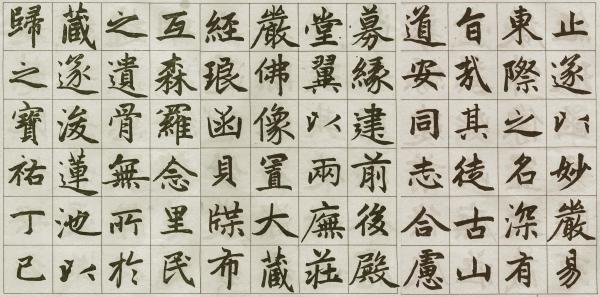 止遂以妙嚴易
東際之名深有
旨哉其徒古山
道安同志合慮
募緣建前後殿
堂翼以兩廡莊
嚴佛像置大藏
經琅函貝牒布
互森羅念里民
之遺骨無所於
藏遂浚蓮池以
歸之寶祐丁巳